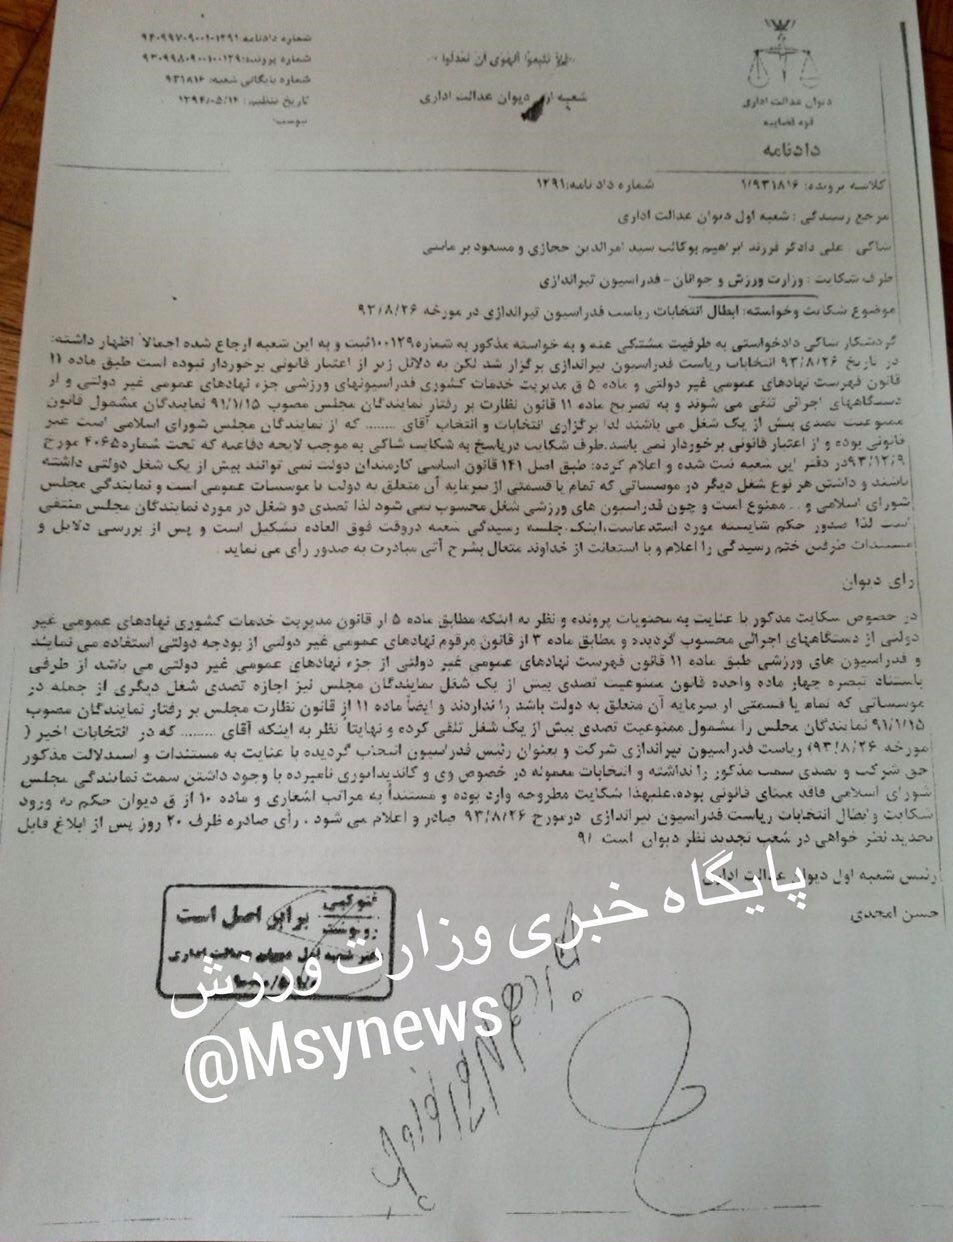 دیوان عدالت اداری
قوه قضاییه
دادنامه
«فلا تتبعوا الهوی ان تعدلوا»
شعبه اول دیوان عدالت اداری
شماره دادنامه: ۹۴۰۹۹۷۰۹۰۰۱۰۱۲۹۱
شماره پرونده: ۹۳۰۹۹۸۰۹۰۰۱۰۰۱۲۹
شماره بایگانی شعبه: ۹۳۱۸۱۶
تاریخ تنظیم: ۱۳۹۴/۰۵/۱۴
پیوست:
کلاسه پرونده: ۱/۹۳۱۸۱۶ شماره دادنامه: ۱۲۹۱
مرجع رسیدگی: شعبه اول دیوان عدالت اداری
شاکی: علی دادگر فرزند ابراهیم بوکالت سید امرالدین حجازی و مسعود
طرف شکایت: وزارت ورزش و جوانان - فدراسیون تیراندازی
موضوع شکایت وخواسته: ابطال انتخابات ریاست فدراسیون تیراندازی در مورخه ۹۳/۸/۲۶
گردشکار شاکی دادخواستی به طرفیت مشتکی عنه و به خواسته مذکور به شماره ۱۰۰۱۲۹ثبت و به این شعبه ارجاع شده اجمالاً اظهار داشته:
در تاریخ ۹۳/۸/۲۶ انتخابات ریاست فدراسیون تیراندازی برگزار شد لکن به دلائل زیر از اعتبار قانونی برخوردار نبوده است طبق ماده ۱۱
قانون فهرست نهادهای عمومی غیر دولتی و ماده ۵ ق مدیریت خدمات کشوری فدراسیونهای ورزشی جزء نهادهای عمومی غیر دولتی و از
دستگاههای اجرائی تلقی می شوند و به تصریح ماده ۱۱ قانون نظارت بر رفتار نمایندگان مجلس مصوب ۹۱/۱/۱۵ نمایندگان مشمول قانون
ممنوعیت تصدی بیش از یک شغل می باشند لذا برگزاری انتخابات و انتخاب آقای ........ که از نمایندگان مجلس شورای اسلامی است غیر
قانونی بوده و از اعتبار قانونی برخوردار نمی باشد.طرف شکایت درپاسخ به شکایت شاکی به موجب لایحه دفاعیه که تحت شماره ۴۰۶۵ مورخ
۹۳/۱۲/۹در دفتر این شعبه ثبت شده و اعلام کرده: طبق اصل ۱۴۱ قانون اساسی کارمندان دولت نمی توانند بیش از یک شغل دولتی داشته
باشند و داشتن هر نوع شغل دیگر در موسساتی که تمام یا قسمتی از سرمایه آن متعلق به دولت یا موسسات عمومی است و نمایندگی مجلس
شورای اسلامی و .. ممنوع است و چون فدراسیون های ورزشی شغل محسوب نمی شود لذا تصدی دو شغل در مورد نمایندگان مجلس منتفی
است لذا صدور حکم شایسته مورد استدعاست.اینک جلسه رسیدگی شعبه دروقت فوق العاده تشکیل است و پس از بررسی دلایل و
مستندات طرفین ختم رسیدگی را اعلام و با استعانت از خداوند متعال بشرح آتی مبادرت به صدور رأی می نماید.
رای دیوان
در خصوص شکایت مذکور با عنایت به محتویات پرونده و نظر به اینکه مطابق ماده ۵ از قانون مدیریت خدمات کشوری نهادهای عمومی غیر
دولتی از دستگاههای اجرائی محسوب گردیده و مطابق ماده ۳ از قانون مرقوم نهادهای عمومی غیر دولتی از بودجه دولتی استفاده می نمایند
و فدراسیون های ورزشی طبق ماده ۱۱ قانون فهرست نهادهای عمومی غیر دولتی از جزء نهادهای عمومی غیر دولتی می باشد از طرفی
باستناد تبصره چهار ماده واحده قانون ممنوعیت تصدی بیش از یک شغل نمایندگان مجلس نیز اجازه تصدی شغل دیگری از جمله در
موسساتی که تمام یا قسمتی از سرمایه آن متعلق به دولت باشد را ندارند و ایضاً ماده ۱۱ از قانون نظارت مجلس بر رفتار نمایندگان مصوب
۹۱/۱/۱۵ نمایندگان مجلس را مشمول ممنوعیت تصدی بیش از یک شغل تلقی کرده و نهایتاً نظر به اینکه آقای ........ که در انتخابات اخیر (
مورخه ۹۳/۸/۲۶) ریاست فدراسیون تیراندازی شرکت و بعنوان رئیس فدراسیون انتخاب گردیده با عنایت به مستندات و استدلالت مذکور
حق شرکت و تصدی سمت مذکور را نداشته و انتخابات معموله در خصوص وی و کاندیداتوری نامبرده با وجود داشتن سمت نمایندگی مجلس
شورای اسلامی فاقد مبنای قانونی بوده.علیهذا شکایت مطروحه وارد بوده و مستنداً به مراتب اشعاری و ماده ۱۰ از ق دیوان حکم به ورود
شکایت و ابطال انتخابات ریاست فدراسیون تیراندازی درمورخ ۹۳/۸/۲۶ صادر و اعلام می شود. رأی صادره ظرف ۲۰ روز پس از ابلاغ قابل
تجدید نظر خواهی در شعب تجدید نظر دیوان است /۹
رئیس شعبه اول دیوان عدالت اداری
حسن امجدی
فتوکپی
رونوشت
برابر اصل است
دفتر شعبه اول دیوان عدالت اداری
پایگاه خبری وزارت ورزش
@Msynews